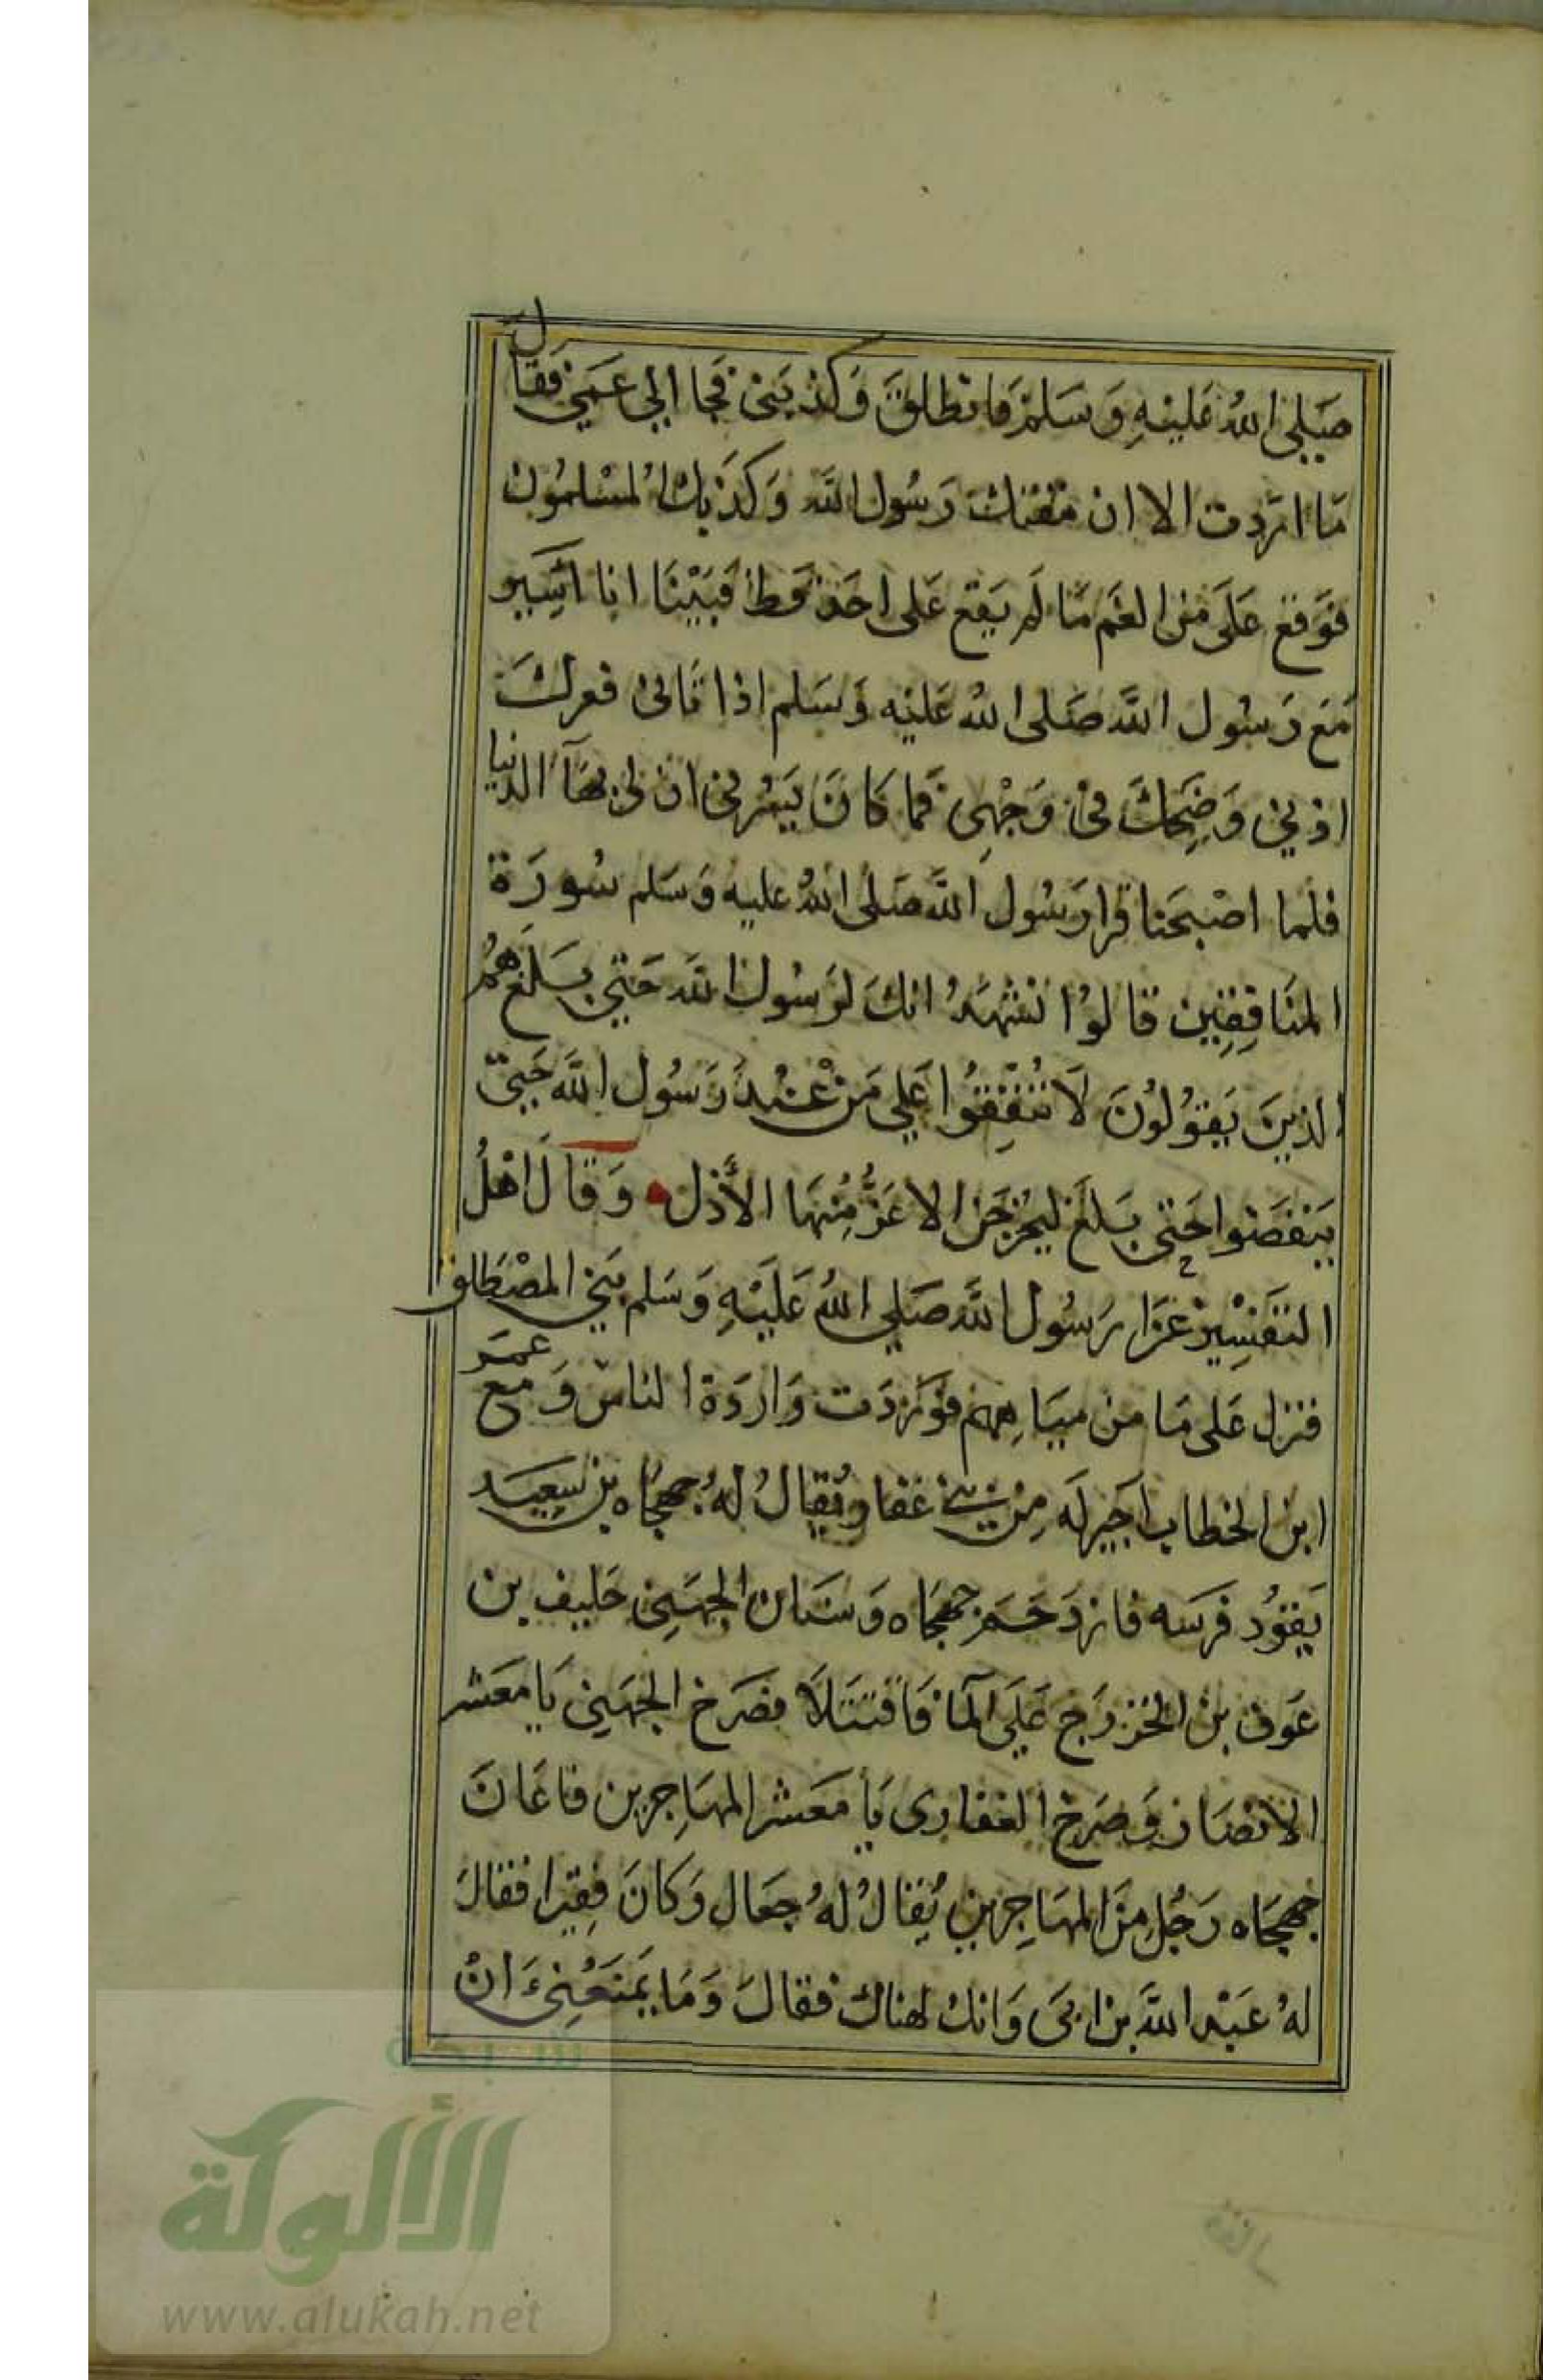 صَلى اللهُ عَليْهِ وَسَلمْ فانطلقَ وَكذبَنى فجا الي عَمي فقال
مَا اردت الا ان مقتك رَسُول الله وَكذبك المسْلمُون
فوَقع عَلَى مِن الغم مَا لم يَقع عَلى احَد قط فبَيْنَا انا اسِير
مَع رَسُول الله صَلى اللهُ عَليْه وَسَلم اذا تانى فعرك
اذني وَضحِكَ في وَجْهِى فما كانَ يَسُرنى ان لى بهَا الدنيا
فلما اصْبحَنا قرا رَسُول الله صَلى اللهُ عليه وَسَلم سُورَة
المنَافِقِين قالوُا نشْهَدُ انكَ لرَسُول الله حَتي بَلغ هُمُ
الذينَ يَقوُلوُنَ لاَ تُنْفِقوُا عَلي مَنْ عنْدَ رَسُول الله حَتيّ
يَنفَضوا حَتى بَلغ ليُخرجَن الاعَزُّ مِنْهَا الأذل وَقالَ اهْلُ
التفسِير غزا رَسُول الله صَلي اللهُ عَليْهِ وَسَلم بَني المصْطلق
فنزل عَلى مَا من ميَاهِهم فوَرَدَت وَاردَة الناس وَمع عمَر
ابن الخطاب اجَير لَه مِن بَني غفار يُقالُ لهُ جهجَاه بن سَعِيَد
يَقوُد فرَسَه فازدَحَمَ جهجَاه وَسنَان الجهَنِى حَليف بن
عَوف بن الخزرَج عَلَي المَا فَاقتتَلاَ فصَرخ الجهَنِي يَا مَعَشر
الانصَار وَصَرخ الغفارى يَا مَعَشر المهَاجِرين فاعَانَ
جهجَاه رَجُل مِنَ المهَاجِرين يُقالُ لهُ جعَال وَكانَ فِقيرا فقالَ
لهُ عَبْد الله بن ابَى وَانك لهناك فقالَ وَمَا يَمنعُنى انْ
شبكة
الألوكة
www.alukah.net